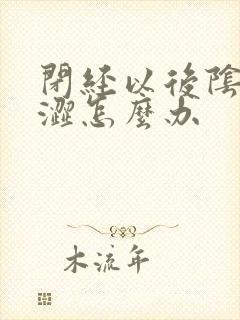 閉經以後陰
澀怎麼办
木流年